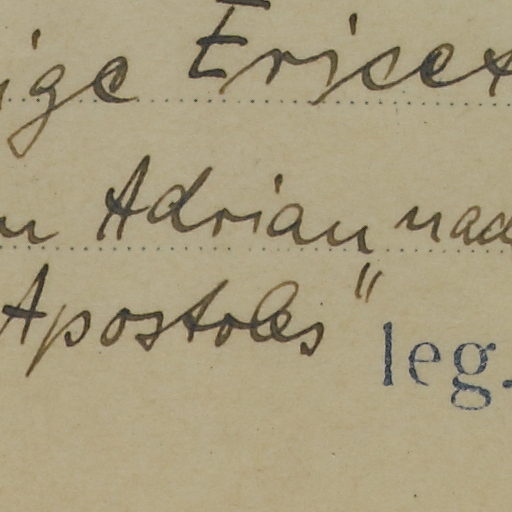 ige Ericet
n Adrian nad
Apostoles"
leg.